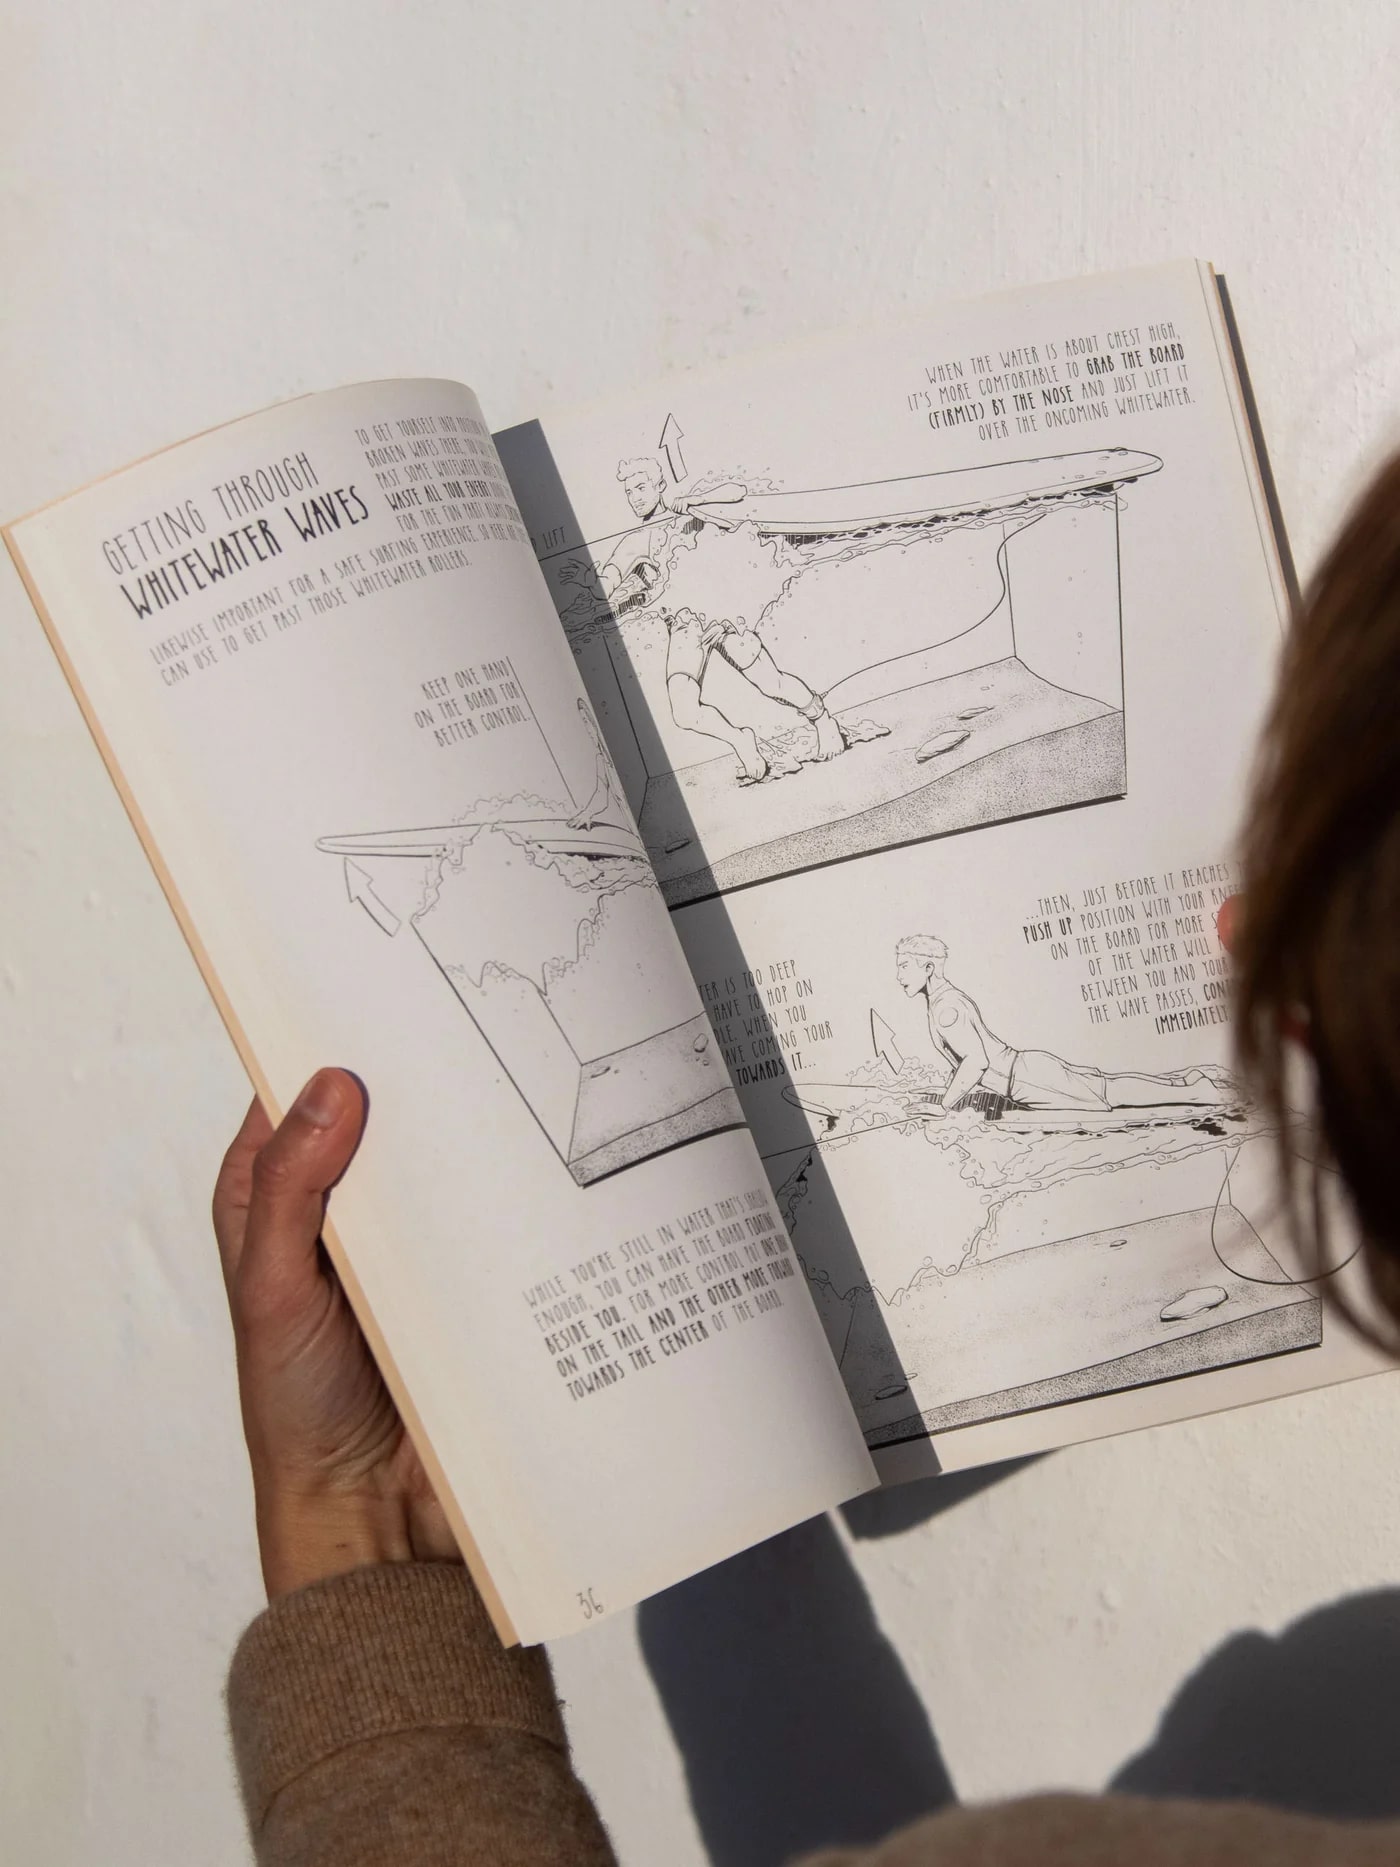 GETTING THROUGH
WHITEWATER WAVES
TO GET YOURSELF INTO POSITION
BROKEN WAVES THERE, YOU
PAST SOME WHITEWATER
WASTE ALL YOUR ENERGY
FOR THE FUN PART!
LIKEWISE IMPORTANT FOR A SAFE SURFING EXPERIENCE. SO HERE ARE
CAN USE TO GET PAST THOSE WHITEWATER ROLLERS.
KEEP ONE HAND
ON THE BOARD FOR
BETTER CONTROL.
WHILE YOU'RE STILL IN WATER THAT'S SHALLOW
ENOUGH, YOU CAN HAVE THE BOARD FLOATING
BESIDE YOU. FOR MORE CONTROL PUT ONE
ON THE TAIL AND THE OTHER MORE
TOWARDS THE CENTER OF THE BOARD.
36
WHEN THE WATER IS ABOUT CHEST HIGH,
IT'S MORE COMFORTABLE TO GRAB THE BOARD
(FIRMLY) BY THE NOSE AND JUST LIFT IT
OVER THE ONCOMING WHITEWATER.
LIFT
IS TOO DEEP
HAVE TO HOP ON
WHEN YOU
COMING YOUR
TOWARDS IT...
...THEN, JUST BEFORE IT REACHES
PUSH UP POSITION WITH YOUR
ON THE BOARD FOR MORE
OF THE WATER WILL
BETWEEN YOU AND YOUR
THE WAVE PASSES,
IMMEDIATELY